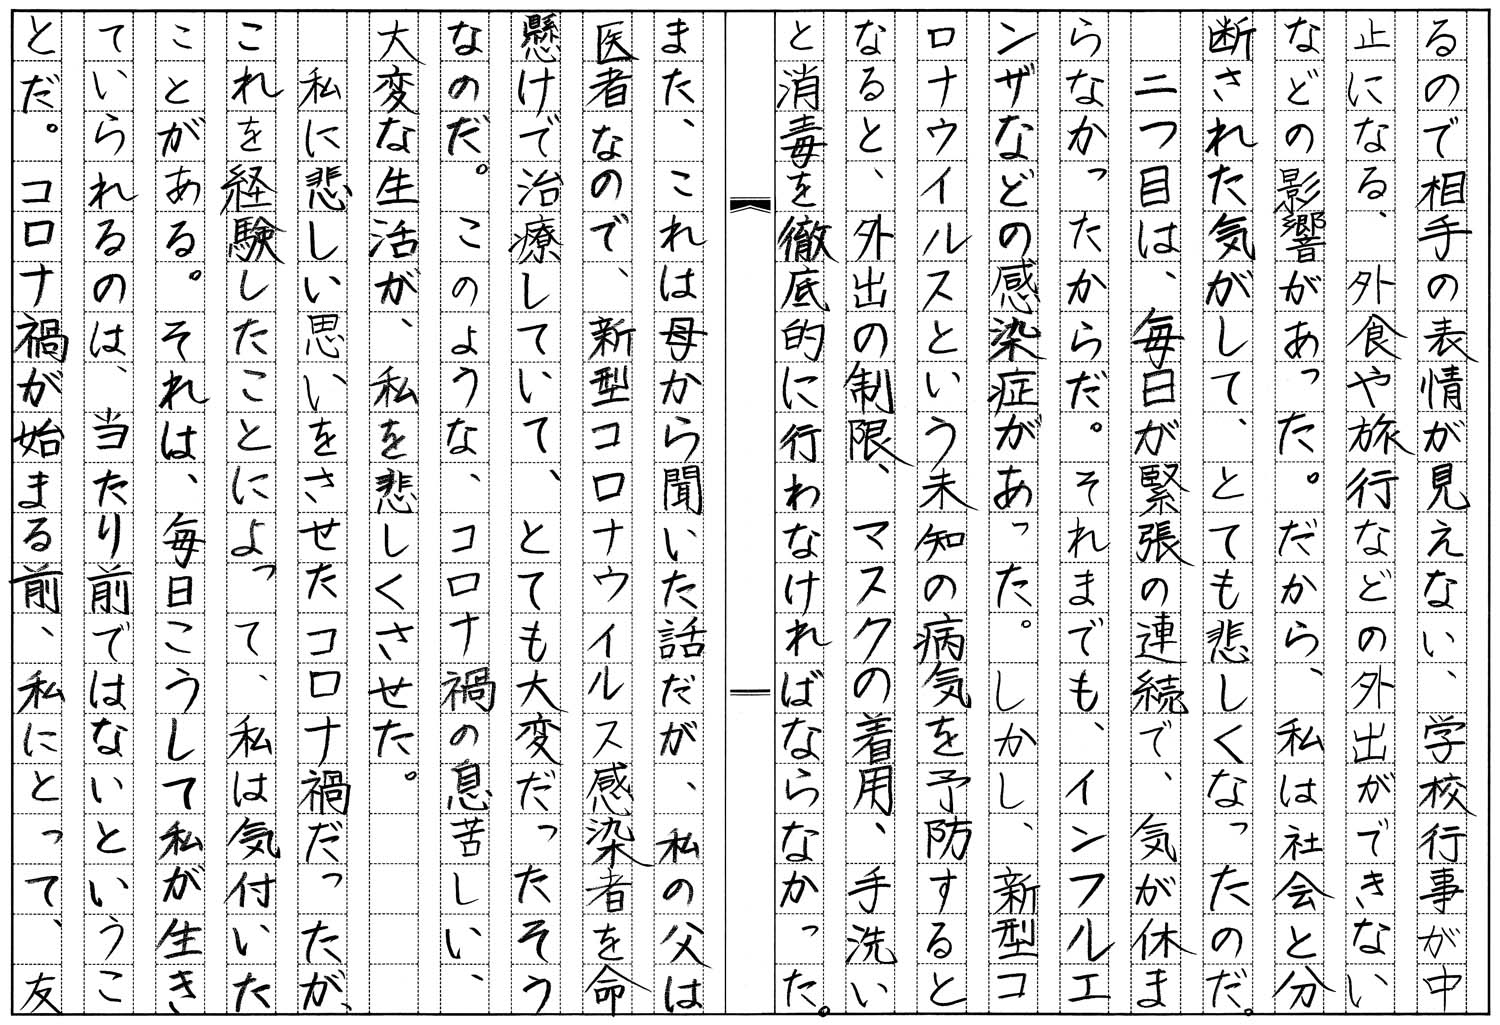 るので相手の表情が見えない、学校行事が中
止になる、外食や旅行などの外出ができない
などの影響があった。だから、私は社会と分
断された気がして、とても悲しくなったのだ。
二つ目は、毎日が緊張の連続で、気が休ま
らなかったからだ。それまでも、インフルエ
ンザなどの感染症があった。しかし、新型コ
ロナウイルスという未知の病気を予防すると
なると、外出の制限、マスクの着用、手洗い
と消毒を徹底的に行わなければならなかった。
また、これは母から聞いた話だが、私の父は
医者なので、新型コロナウイルス感染者を命
懸けで治療していて、とても大変だったそう
なのだ。このような、コロナ禍の息苦しい、
大変な生活が、私を悲しくさせた。
私に悲しい思いをさせたコロナ禍だったが、
これを経験したことによって、私は気付いた
ことがある。それは、毎日こうして私が生き
ていられるのは、当たり前ではないというこ
とだ。コロナ禍が始まる前、私にとって、友